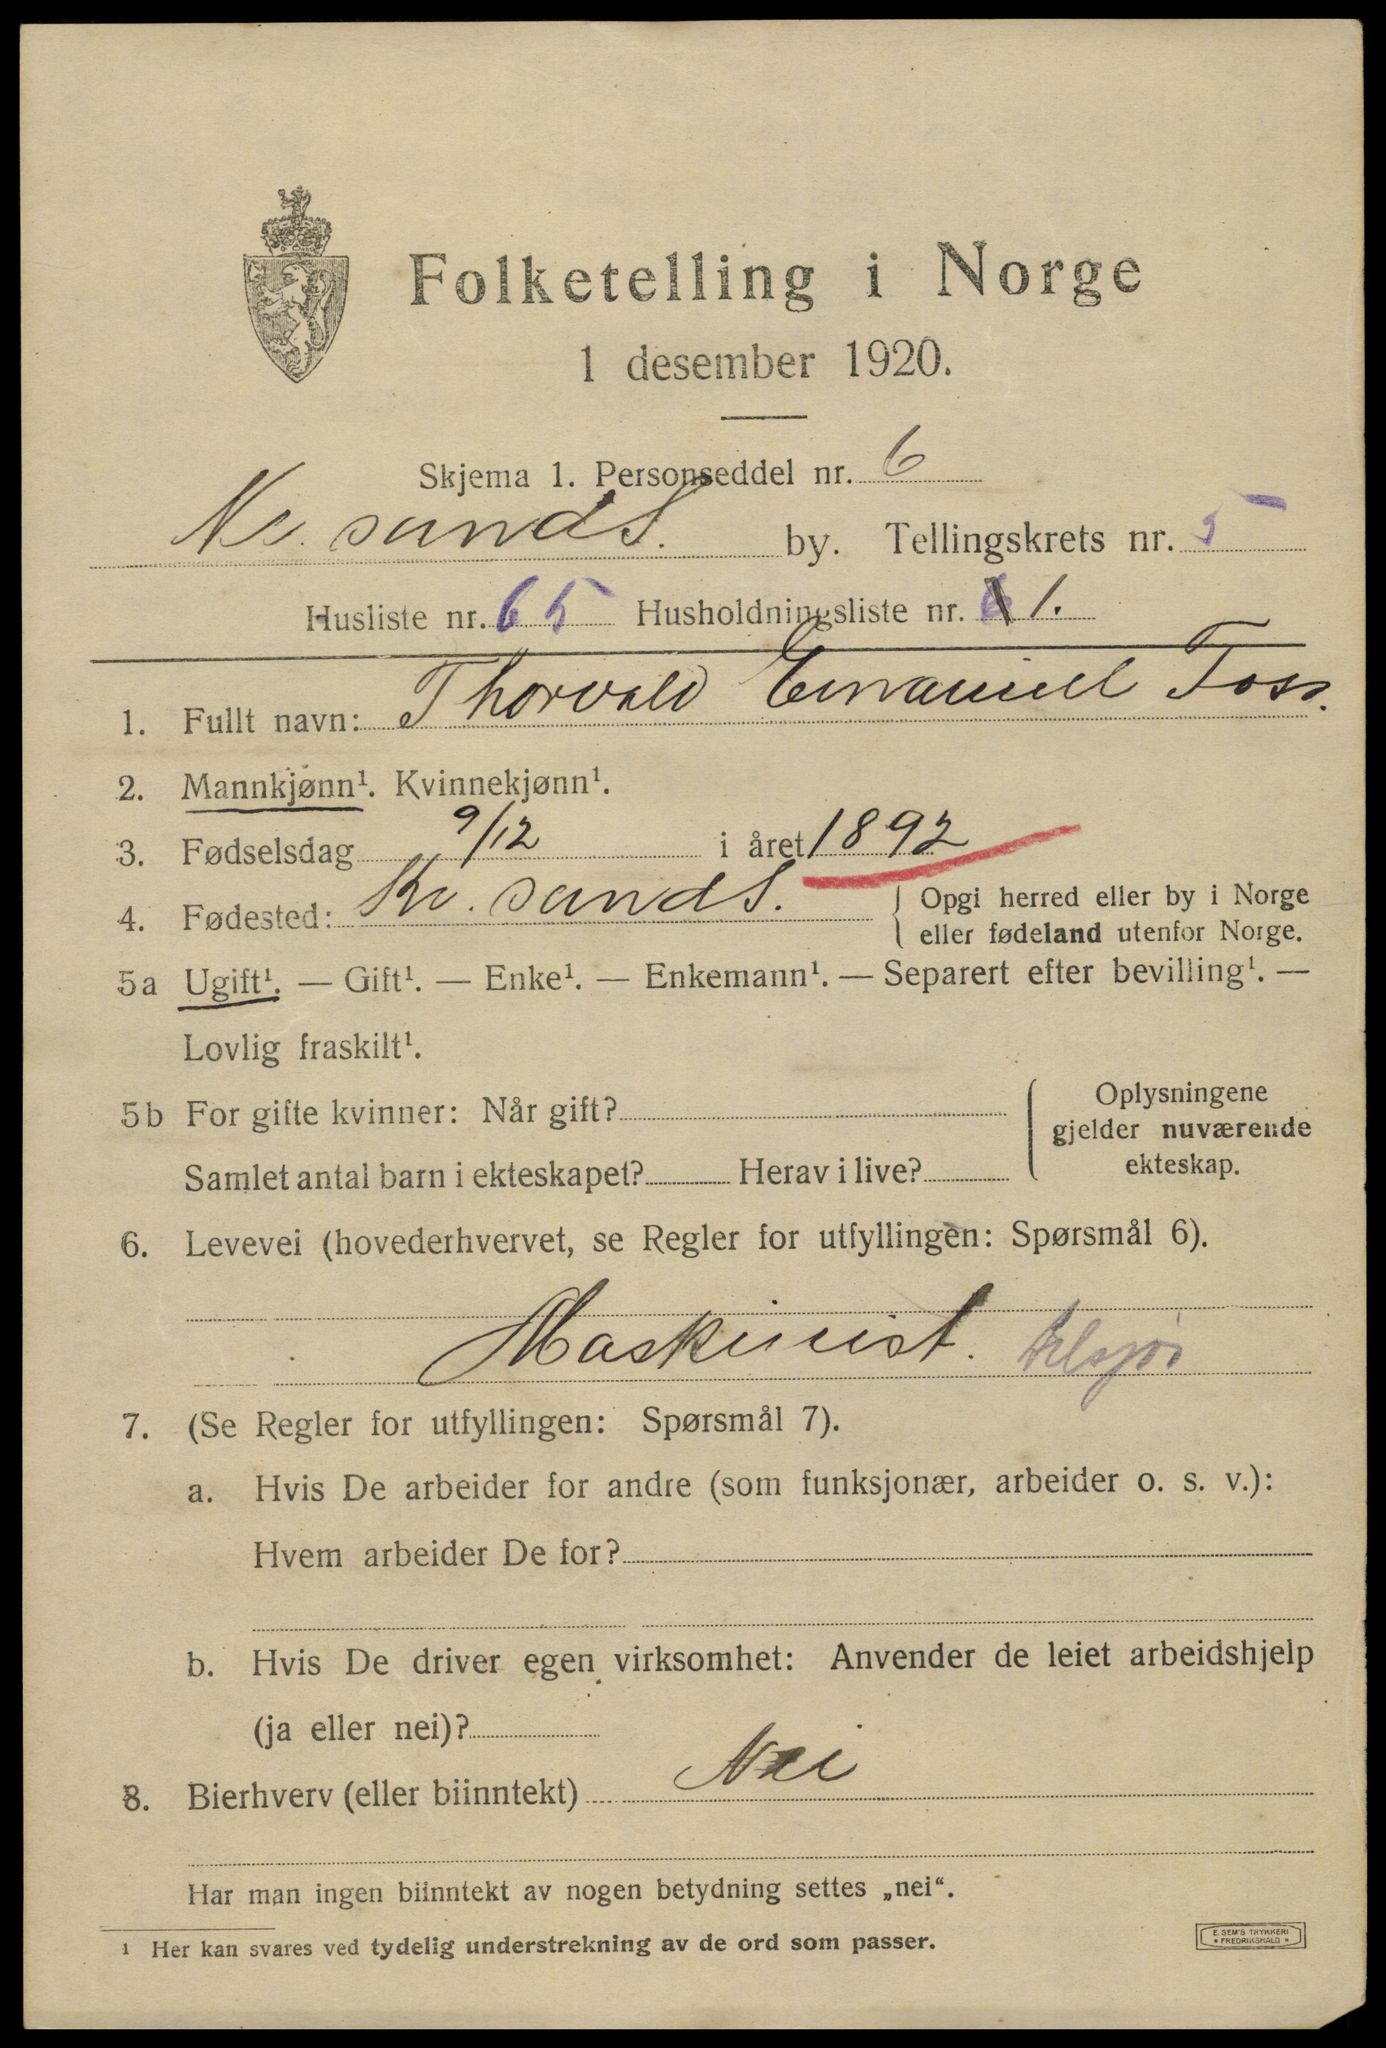 Folketelling i Norge
1 desember 1920.
Skjema 1. Personseddel nr. 6
Kr. sand S. by. Tellingskrets nr. 5
Husliste nr. 65 Husholdningsliste nr. 1.
1. Fullt navn: Thorvald Emanuel Foss.
2. Mannkjønn¹. Kvinnekjønn¹.
3. Fødselsdag 9/12 i året 1892
4. Fødested: Kr. sand S. { Opgi herred eller by i Norge
eller fødeland utenfor Norge.
5a Ugift¹. — Gift¹. — Enke¹. — Enkemann¹. — Separert efter bevilling¹. —
Lovlig fraskilt¹.
5b For gifte kvinner: Når gift? { Oplysningene
gjelder nuværende
ekteskap.
Samlet antal barn i ekteskapet? Herav i live?
6. Levevei (hovederhvervet, se Regler for utfyllingen: Spørsmål 6).
Maskinist.
7. (Se Regler for utfyllingen: Spørsmål 7).
a. Hvis De arbeider for andre (som funksjonær, arbeider o. s. v.):
Hvem arbeider De for?
b. Hvis De driver egen virksomhet: Anvender de leiet arbeidshjelp
(ja eller nei)?
8. Bierhverv (eller biinntekt) Nei
Har man ingen biinntekt av nogen betydning settes „nei“.
¹ Her kan svares ved tydelig understrekning av de ord som passer.
E. SEM'S TRYKKERI
* FREDRIKSHALD *